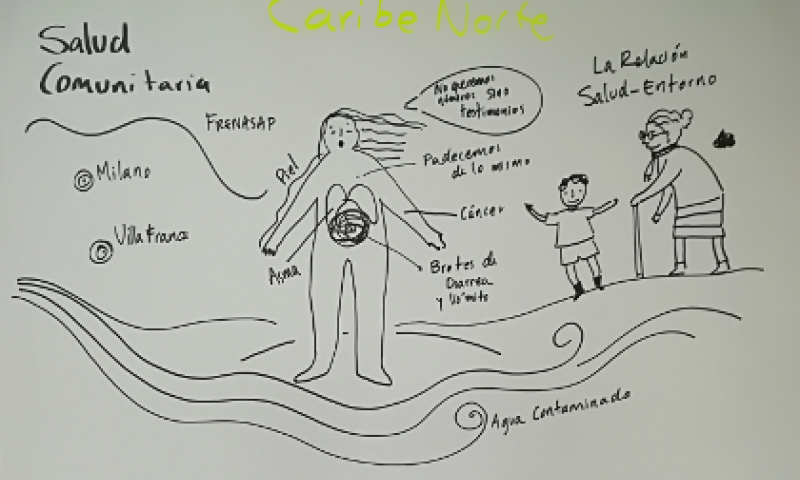 Caribe Norte
Salud
Comunitaria
FRENASAP
Milano
Villa Franca
Piel
Asma
No queremos
números sino
testimonios
Padecemos
de lo mismo
Cáncer
Brotes de
Diarrea
y Vómito
La Relación
Salud-Entorno
Agua Contaminado